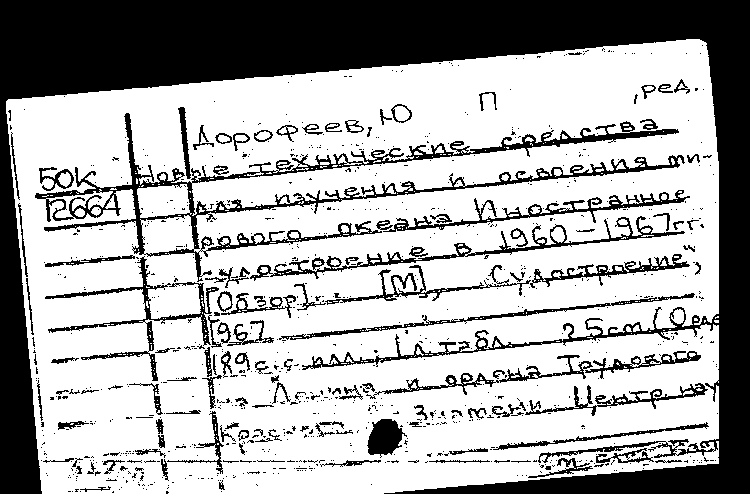 Дорофеев, Ю П , ред.
50к Новые технические средства
12664 для изучения и освоения ми-
рового океана. Иностранное
судостроение в 1960-1967гг.
[Обзор]. [М], „Судостроение",
1967
189с. с илл.; 1 л. табл. 25см (Орде
на Ленина и ордена Трудового
Красного Знамени Центр. науч
См. след. карт